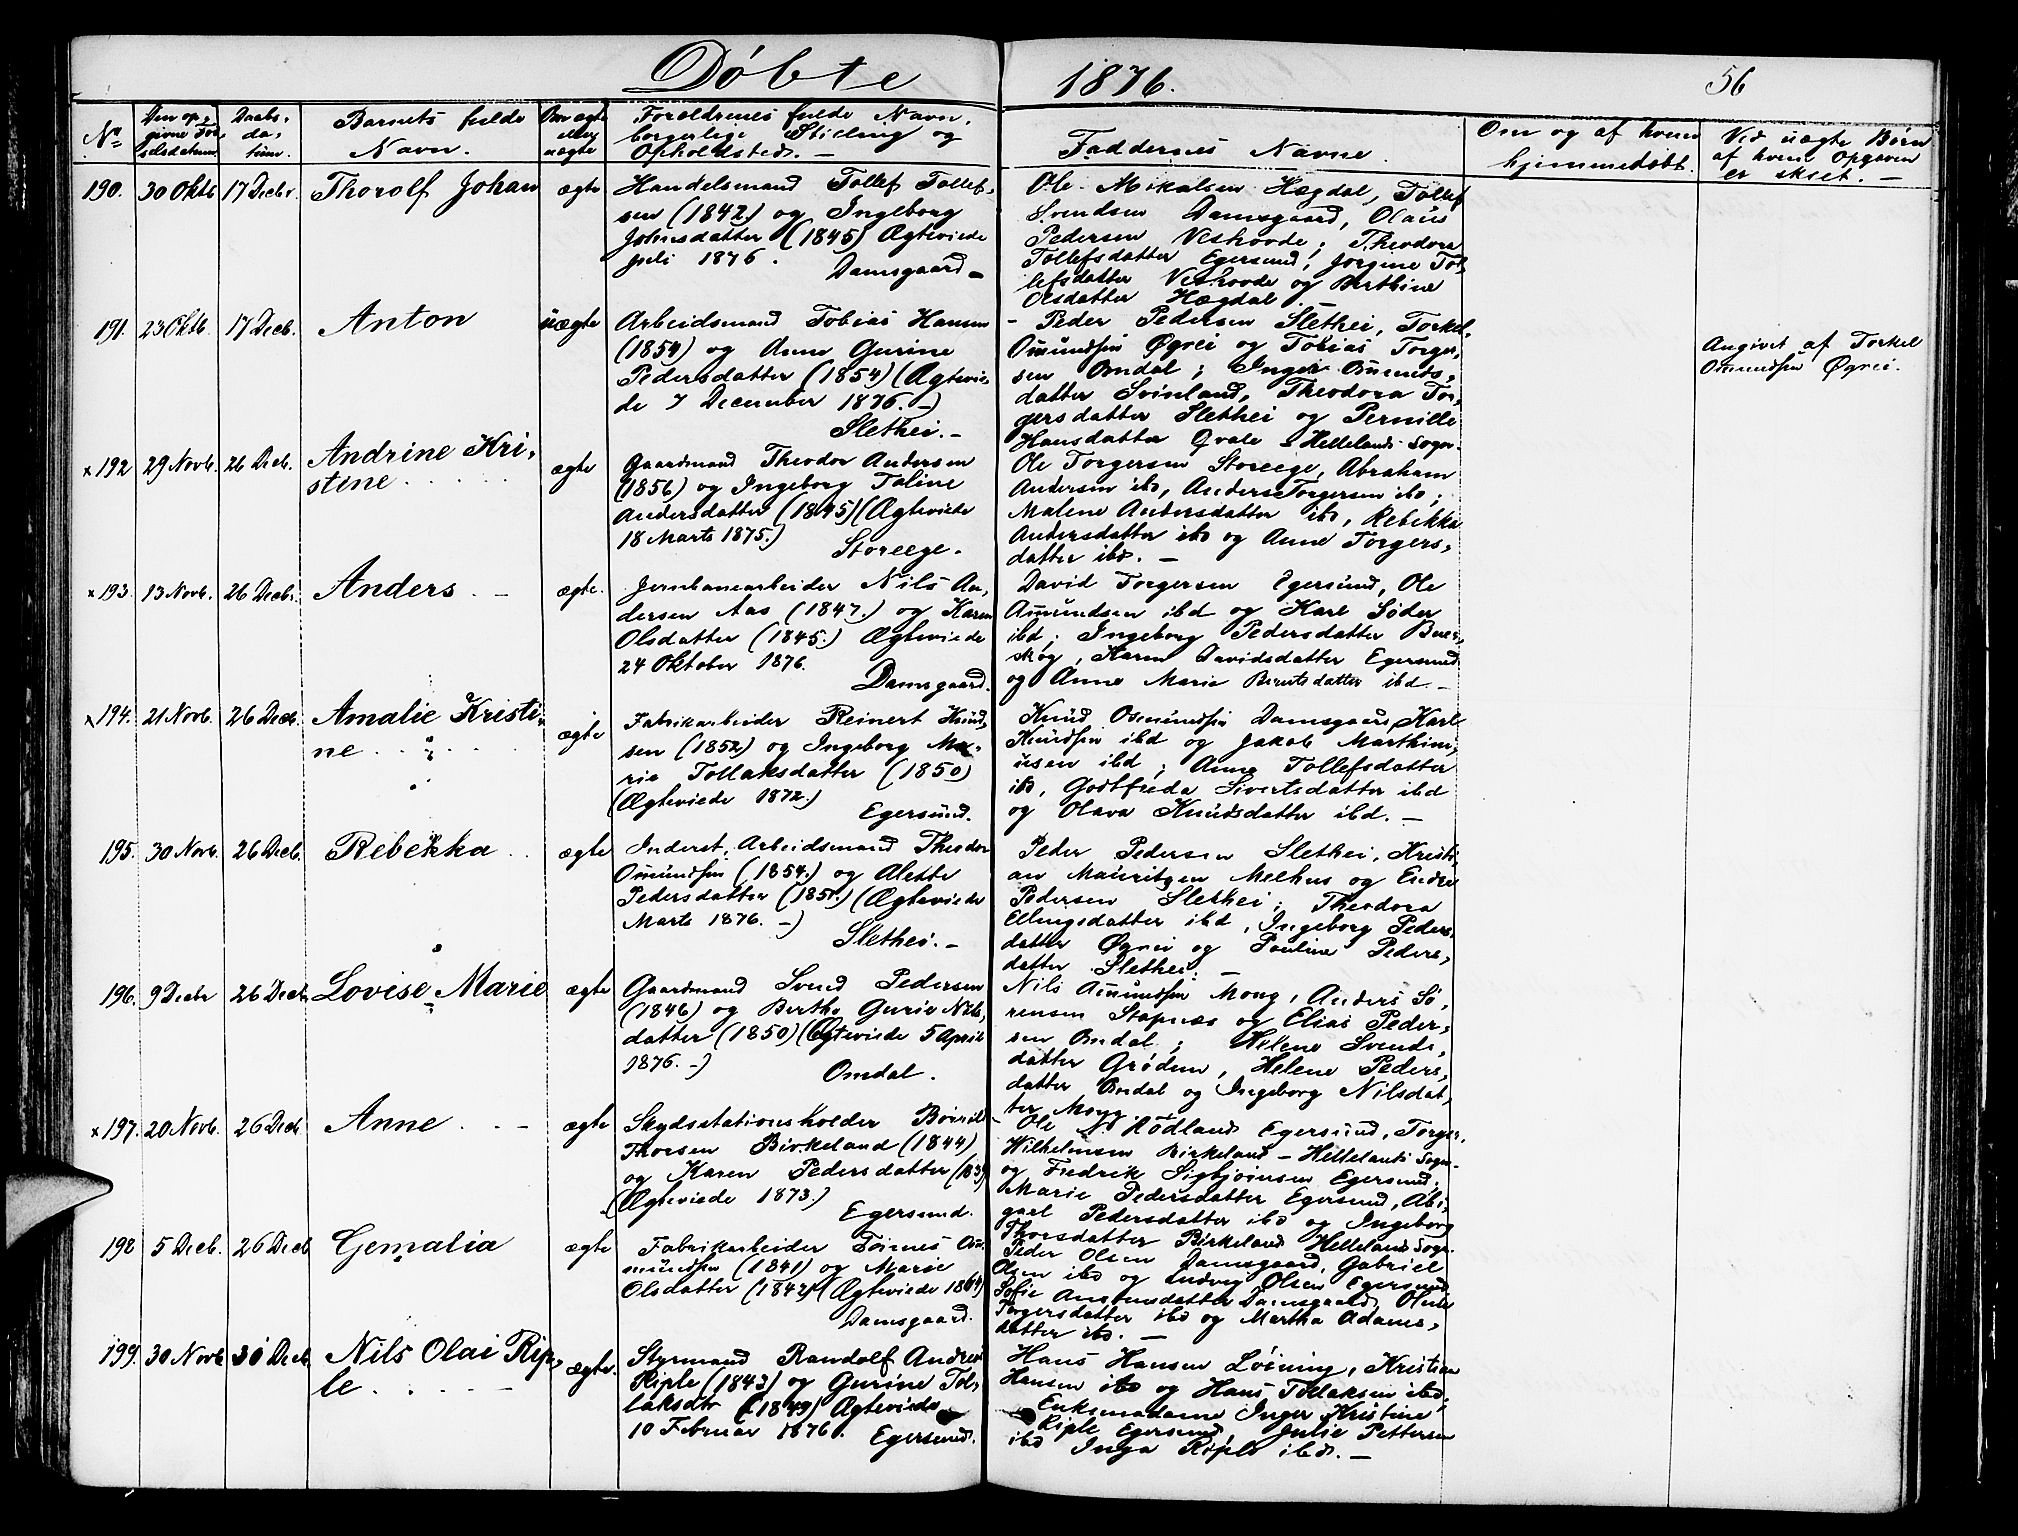 Døbte 1876. 56
No
Den op-
givne Fød-
selsdatum
Daabs-
da-
tum.
Barnets fulde
Navn.
Om ægte
eller
uægte
Forældrenes fulde Navn,
borgerlige Stilling og
Opholdsted. —
Faddernes Navne.
Om og af hvem
hjemmedøbt.
Ved uægte Børn
af hvem Opgaven
er skeet. —
190. 30 Oktb 17 Decbr. Thorolf Johan ægte
Handelsmand Tollef Tollef-
sen (1842) og Ingeborg
Johnsdatter (1845) Ægteviede
juli 1876.
Damsgaard —
Ole Mikalsen Hægdal, Tollef
Svendsen Damsgaard, Olaus
Pedersen Veshovde; Theodora
Tollefsdatter Egersund, Jorgine Tol-
lefsdatter Veshovde og Berthine
Olsdatter Hægdal
191. 23 Oktb. 17 Decb. Anton uægte
Arbeidsmand Tobias Hansen
(1854) og Anne Gurine
Pedersdatter (1854) (Ægtevie-
de 7 December 1876. —)
Slethei. —
Peder Pedersen Slethei, Torkel
Omundsen Øgrei og Tobias Torger-
sen Omdal; Inger Omunds-
datter Svinland, Theodora Tor-
gersdatter Slethei og Pernille
Hansdatter Qvale Hellelands Sogn.
Angivet af Torkel
Omundsen Øgrei.
x 192 29 Novb. 26 Decb. Andrine Kri-
stine ægte
Gaardmand Theodor Andersen
(1856) og Ingeborg Taline
Andersdatter (1845) (Ægteviede
18 Marts 1875.)
Storeege.
Ole Torgersen Storeege, Abraham
Andersen ibd, Anders Torgersen ibd;
Malene Andersdatter ibd, Rebekka
Andersdatter ibd og Anne Torgers-
datter ibd. —
x 193. 13 Novb. 26 Decb. Anders — ægte.
Jernbanearbeider Nils An-
dersen Aas (1847.) og Karen
Olsdatter (1845.) Ægteviede
24 Oktober 1876.
Damsgaard.
David Torgersen Egersund, Ole
Amundsen ibd og Karl Søder
ibd; Ingeborg Pedersdatter
skog, Karen Davidsdatter Egersund
og Anne Marie Berntsdatter ibd. —
x 194. 21 Novb. 26 Decb. Amalie Kristi-
ne ægte
Fabrikarbeider Reinert Knud-
sen (1852) og Ingeborg Ma-
rie Tollaksdatter (1850)
(Ægteviede 1872.)
Egersund.
Knud Osmundsen Damsgaard, Karl
Knudsen ibd og Jakob Marthini-
usen ibd; Anne Tollefsdatter
ibd, Godtfreda Sivertsdatter ibd
og Olava Knudsdatter ibd. —
195. 30 Novb. 26 Decb. Rebekka ægte
Inderst. Arbeidsmand Theodor
Omundsen (1854.) og Alette
Pedersdatter (1851.) (Ægteviede
Marts 1876. —)
Slethei. —
Peder Pedersen Slethei, Kristi-
an Mauritzen Melhus og Endre
Pedersen Slethei; Theodora
Ellingsdatter ibd, Ingeborg Peders-
datter Øgrei og Pauline Peders-
datter Slethei. —
196. 9 Decbr 26 Decb. Lovise Marie ægte
Gaardmand Svend Pedersen
(1846) og Berthe Gurie Nils-
datter (1850) (Ægteviede 5 April
1876. —)
Omdal.
Nils Amundsen Mong, Anders Sø-
rensen Stapnæs og Elias Peder-
sen Omdal; Helene Svends-
datter Grødem, Helene Peders-
datter Omdal og Ingeborg Nilsdat-
ter Mong.
x 197. 20 Novb. 26 Decb Anne — ægte
Skydsstationsholder
Thorsen Birkeland (1844)
og Karen Pedersdatter (1839)
(Ægteviede 1873.)
Egersund.
Ole N. Rødland Egersund, Torger
Wilhelmsen Birkeland — Hellelands Sogn
og Fredrik Sigbjørnsen Egersund,
Marie Pedersdatter Egersund, Abi-
gael Pedersdatter ibd og Ingeborg
Thorsdatter Birkeland Hellelands Sogn.
198 5 Decb. 26 Decb Gemalia ægte
Fabrikarbeider Tønnes Os-
mundsen (1841) og Marie
Olsdatter (1842) (Ægteviede 1864)
Damsgaard.
Peder Olsen Damsgaard, Gabriel
Olsen ibd og Ludvig Olsen Egersund,
Sofie Damsgaard,
Torgersdatter ibd og Martha Adams-
datter ibd. —
199. 30 Novb 30 Decb Nils Olai Rip-
le. ægte.
Styrmand Randolf Andreas
Riple (1843) og Gurine Tol-
laksdtr (1849) Ægteviede
10 Februar 1876.
Egersund.
Hans Hansen Løining, Kristian
Hansen ibd og Hans Tollaksen ibd;
Enkemadame Inger Kristine
Riple Egersund, Julie Pettersen
ibd Inga Riple ibd. —